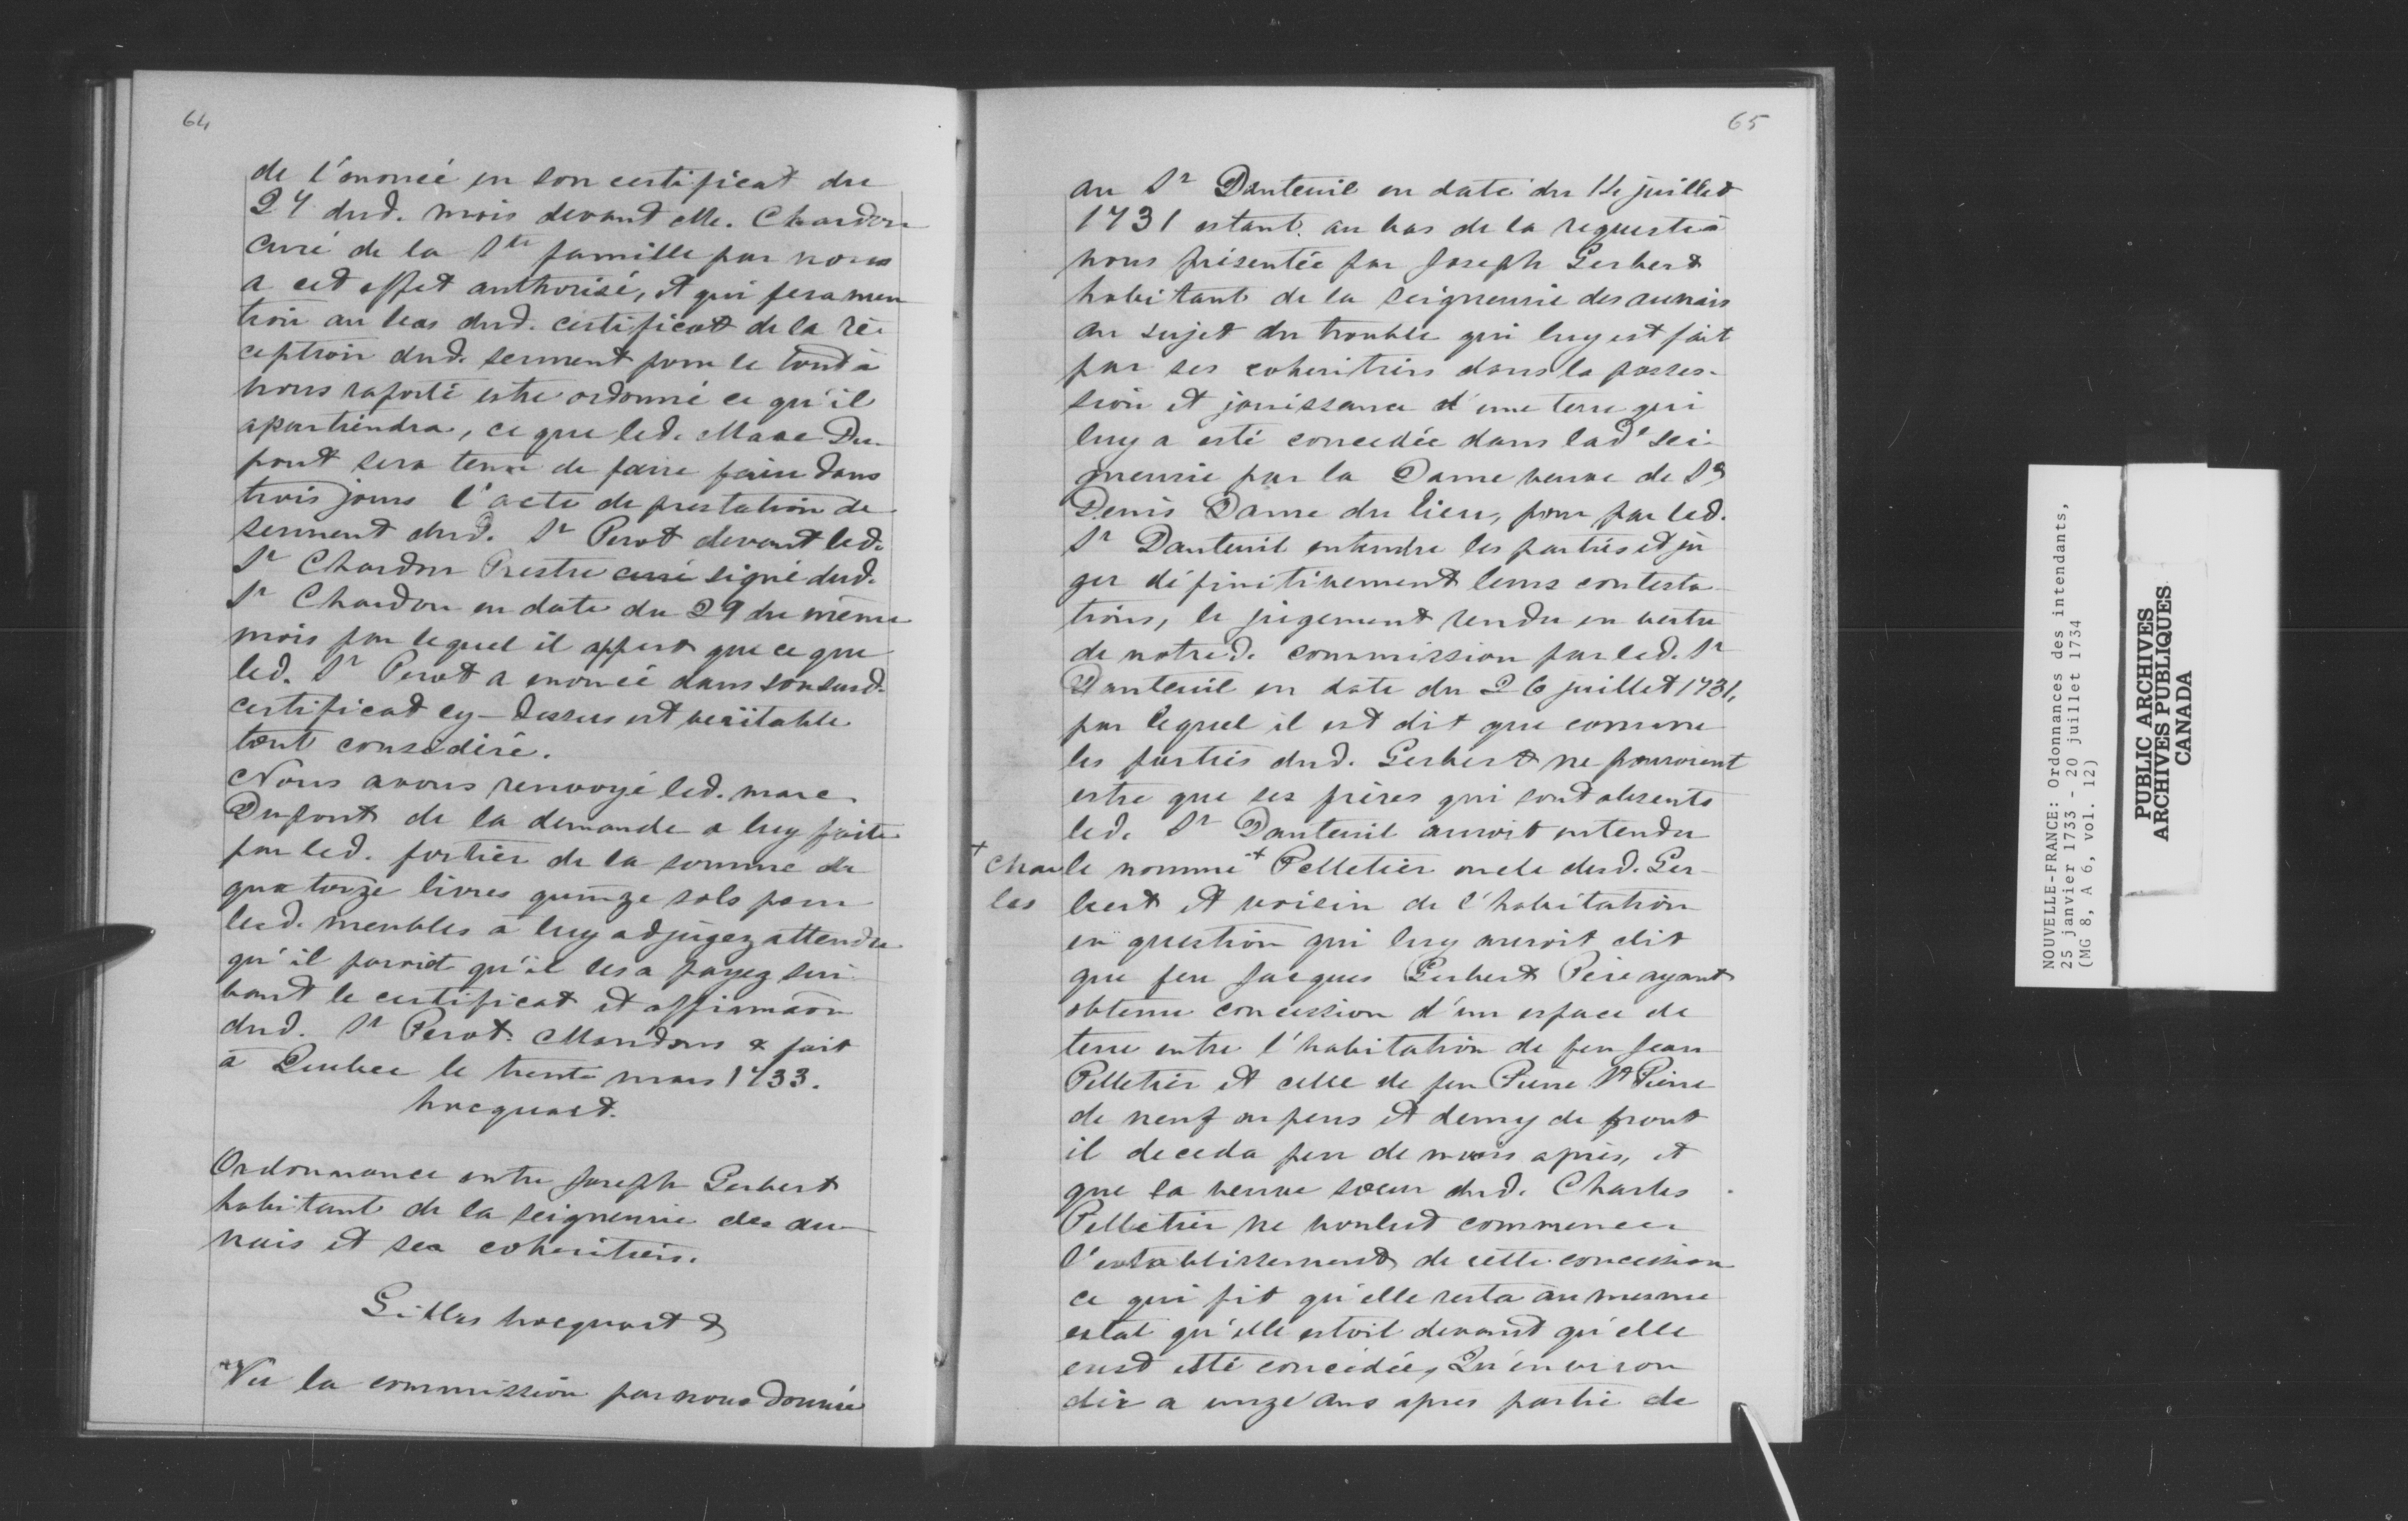 64
de l'énoncé en son certificat du
27 dud. mois devant Me. Chardon
curé de la Ste famille par nous
a cet effet authorisé, et qui fera men
tion au bas dud. certificat de la ré-
ception dud. serment pour le tout à
nous raporté estre ordonné ce qu'il
apartiendra, ce que led. Marc Du-
pont sera tenu de faire faire dans
trois jours l'acte de prestation de
serment dud. Sr Perot devant led.
Sr Chardon Prestre curé signé dud.
Sr Chardon en date du 29 du même
mois par lequel il appert que ce que
led. Sr Perot a enoncé dans son susd.
certificat cy-dessus est veritable
tout consediré.
Nous avons renvoyé led. marc
Dupont de la demande a luy faite
par led. fortier de la somme de
quatorze livres quinze sols pour
lesd. meubles a luy adjugez attendu
qu'il paroit qu'il les a payez sui
vant le certificat et affirmaon
dud. Sr Perot. Mandons & fait
à Quebec le trente mars 1733.
hocquart.
Ordonnance entre Joseph Gerbert
habitant de la seigneurie des au-
nais et ses coheritiers.
Gilles hocquart &
Vu la commission par nous donnée
65
au Sr Dauteuil en date du 14 juillet
1731 estant au bas de la requeste à
nous présentée par Joseph Gerbert
habitant de la seigneurie des aunais
au sujet du trouble qui luy est fait
par ses coheritiers dans la posses-
sion et jouissance d'une terre qui
luy a esté concedée dans lade sei-
gneurie par la Dame veuve de St
Denis Dame du lieu, pour par led.
Sr Dauteuil entendre les parties et ju
ger définitivement leurs contesta-
tions, le jugement rendu en vertu
de notred. commission par led. Sr
Dauteuil en date du 26 juillet 1731,
par lequel il est dit que comme
les parties dud. Gerbert ne pouvoient
estre que ses frères qui sont absents
led. Sr Dauteuil auroit entendu
+ Char le nommé + Pelletier oncle dud. Ger-
les bert et voisin de l'habitation
en question qui luy auroit dit
que feu Jacques Gerbert Père ayant
obtenu concession d'un espace de
terre entre l'habitation de feu Jean
Pelletier et celle de feu Pierre St Pierre
de neuf arpens et demy de front
il deceda peu de mois après, et
que sa veuve sœur dud. Charles
Pelletier ne voulut commencer
l'establissement de cette concession
ce qui fit qu'elle resta au mesme
estat qu'elle estoit devant qu'elle
eust esté concédée, Qu'environ
dix a unze ans apres partie de
NOUVELLE-FRANCE: Ordonnances des intendants,
25 janvier 1733 - 20 juillet 1734
(MG 8, A 6, vol. 12)
PUBLIC ARCHIVES
ARCHIVES PUBLIQUES
CANADA